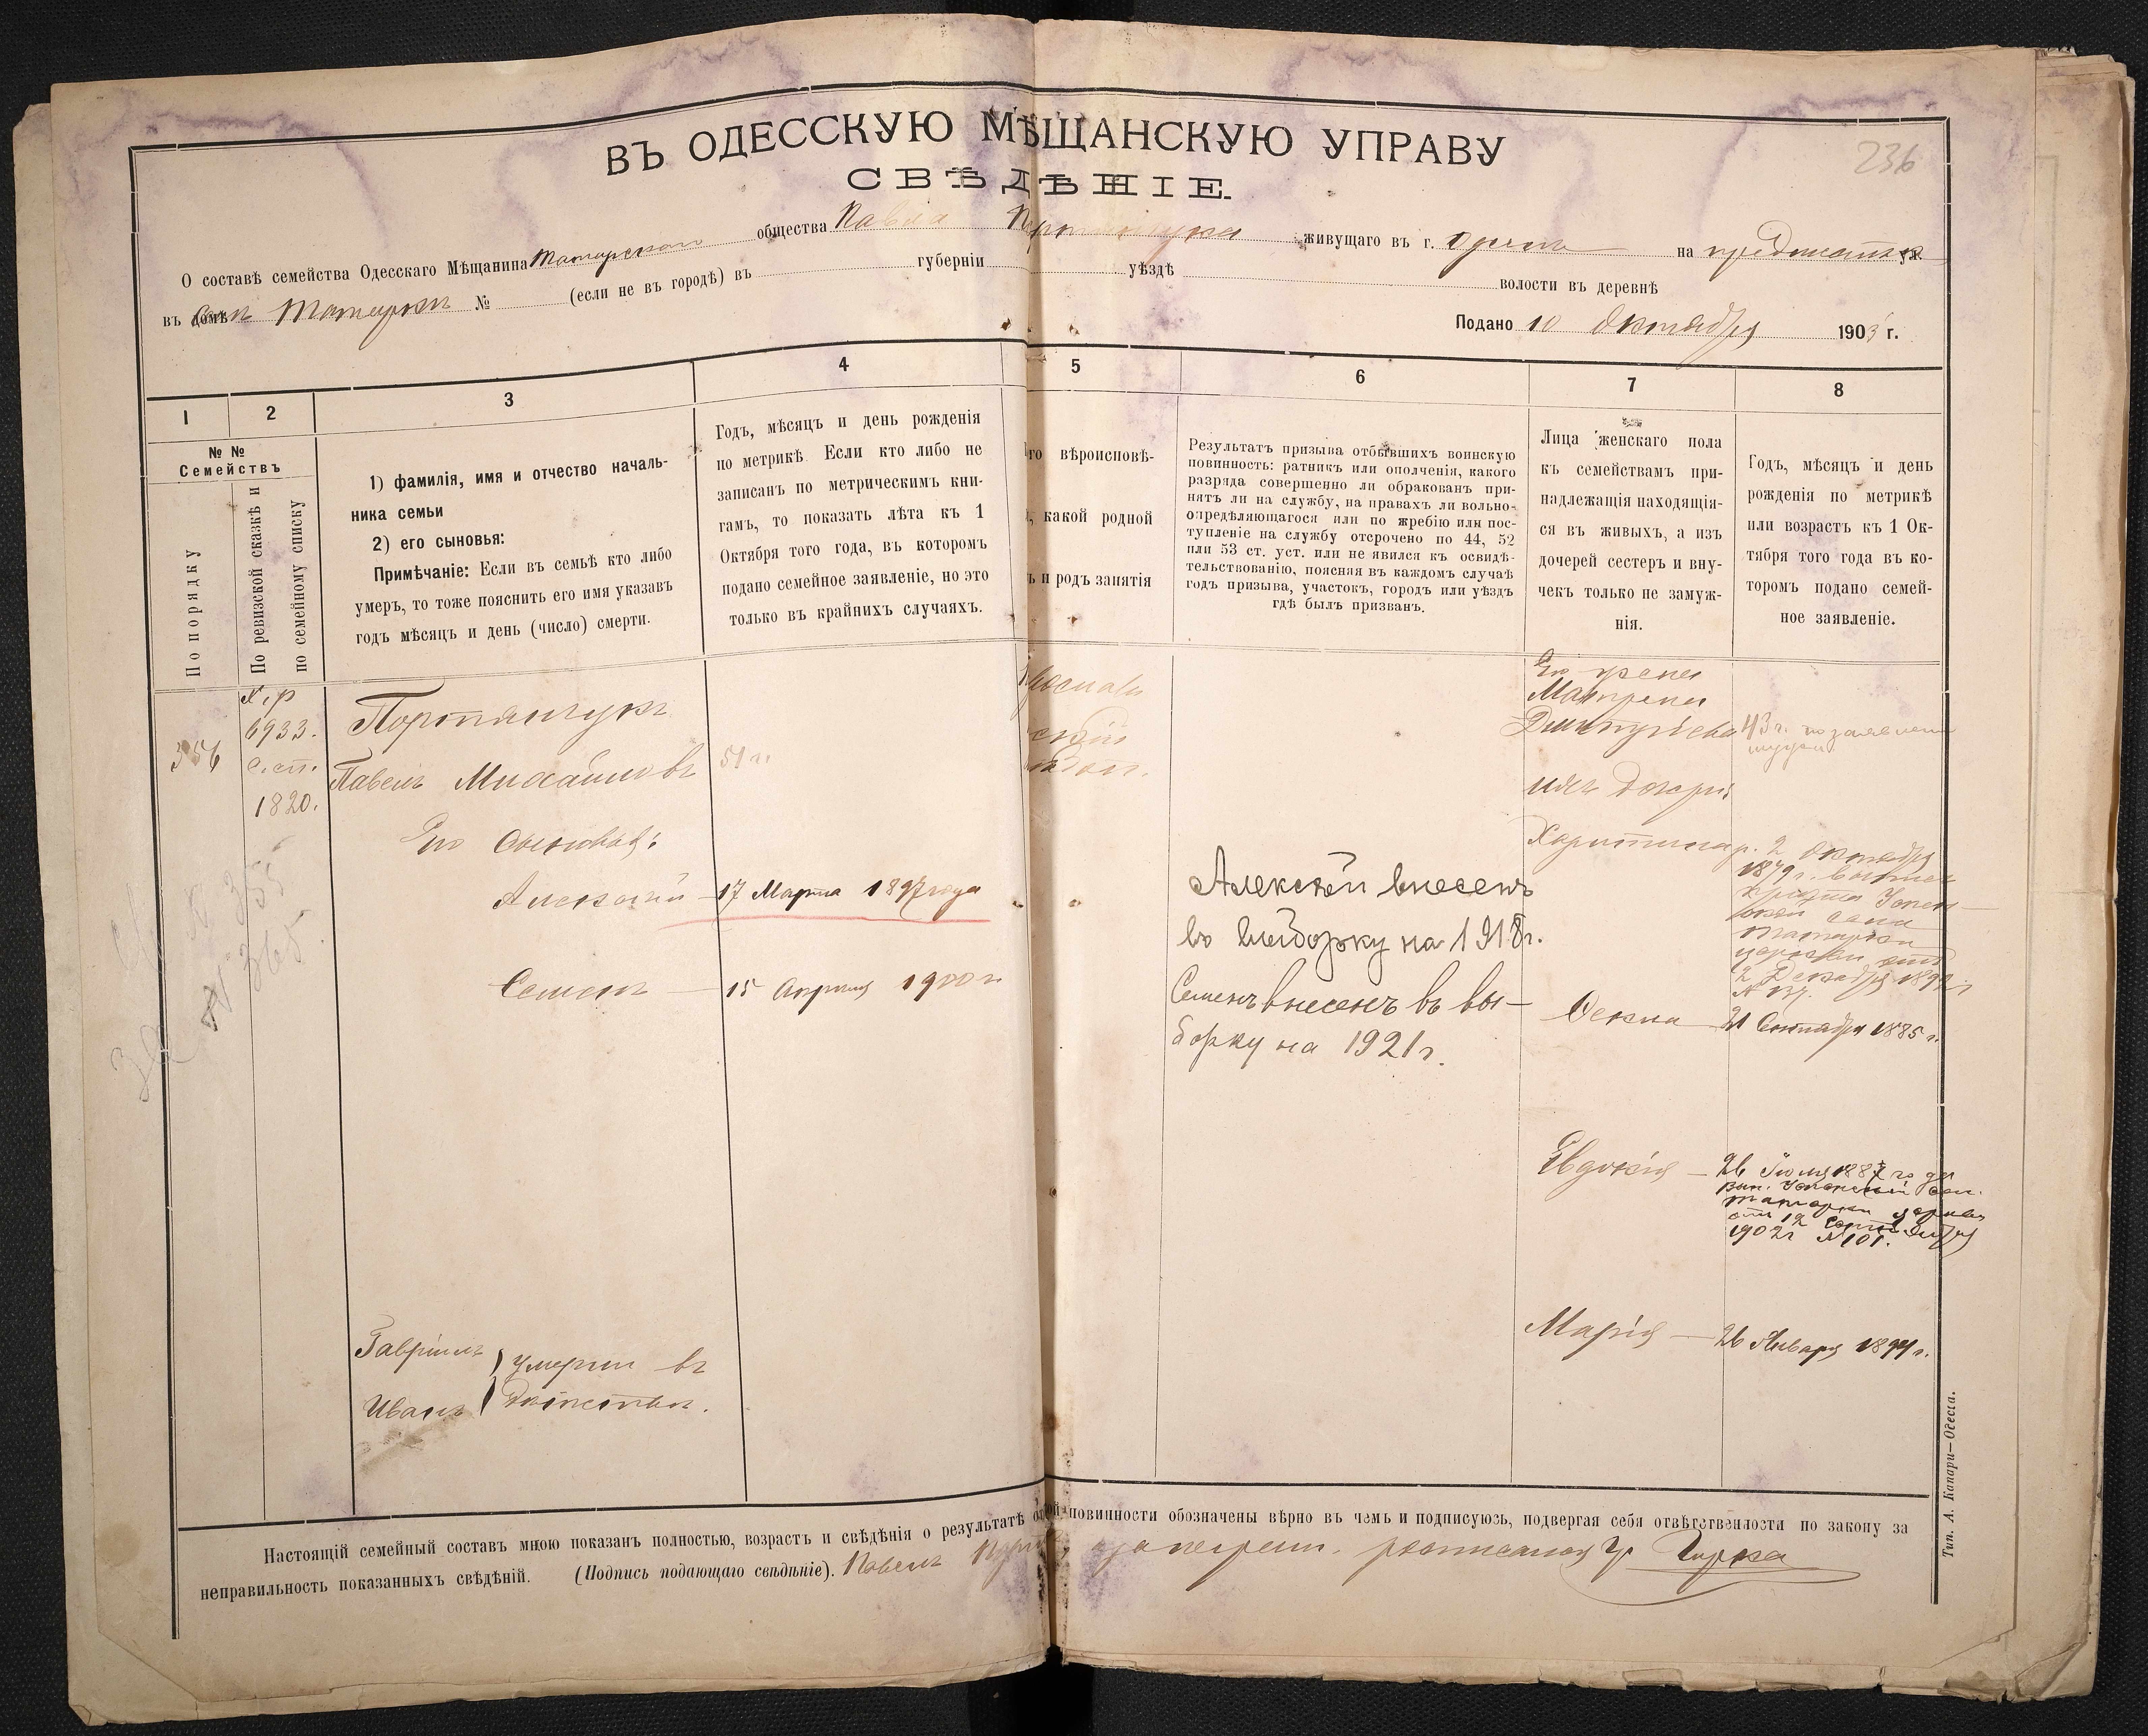 236
ВЪ ОДЕССКУЮ МѢЩАНСКУЮ УПРАВУ
СВѢДѢНІЕ.
О составѣ семейства Одесскаго Мѣщанина Татарскаго общества Павла живущаго въ г. Одессѣ на
въ домѣ Татарки № (если не въ городѣ) въ губерніи уѣздѣ волости въ деревнѣ
Подано 10 Октября 1903 г.
1
2
3
4
5
6
7
8
№ №
Семействъ
По порядку
По ревизской сказкѣ и
по семейному списку
1) фамилія, имя и отчество началь-
ника семьи
2) его сыновья:
Примѣчаніе: Если въ семьѣ кто либо
умеръ, то тоже пояснить его имя указавъ
годъ мѣсяцъ и день (число) смерти.
Годъ, мѣсяцъ и день рожденія
по метрикѣ. Если кто либо не
записанъ по метрическимъ кни-
гамъ, то показать лѣта къ 1
Октября того года, въ которомъ
подано семейное заявленіе, но это
только въ крайнихъ случаяхъ.
го вѣроисповѣ-
какой родной
и родъ занятія
Результатъ призыва отбывшихъ воинскую
повинность: ратникъ или ополченія, какого
разряда совершенно ли обракованъ при-
нятъ ли на службу, на правахъ ли вольно-
опредѣляющагося или по жребію или пос-
тупленіе на службу отсрочено по 44, 52
или 53 ст. уст. или не явился къ освидѣ-
тельствованію, поясняя въ каждомъ случаѣ
годъ призыва, участокъ, городъ или уѣздъ
гдѣ былъ призванъ.
Лица женскаго пола
къ семействамъ при-
надлежащія находящія-
ся въ живыхъ, а изъ
дочерей сестеръ и вну-
чекъ только не замуж-
нія.
Годъ, мѣсяцъ и день
рожденія по метрикѣ
или возрастъ къ 1 Ок-
тября того года въ ко-
торомъ подано семей-
ное заявленіе.
356
Х.р
6933.
с.сп.
1820.
Портянчукъ
Павелъ Михайловъ
51 г.
Его Сыновья:
Алексѣй — 17 Марта 1897 года
Семенъ — 15 Апрѣля 1900 г.
Гавріилъ
Иванъ
умерли въ
дѣтствѣ.
№ 355
№ 365
Алексѣй внесенъ
въ выборку на 1918 г.
Семенъ внесенъ въ вы-
борку на 1921 г.
Его жена
Матрена
Дмитріева 43 г. по заявленію
ихъ дочери
Харитина р. 2 Октября
1879 г.
Успен-
ской села
Татарки
церкви отъ
2 Декабря 189
№ 137.
21 Сентября 1885 г.
Евдокія — 26 Іюля 188
Успенской сел.
Татарки церкви
отъ 12 Сентября
1902 г № 101.
Марія — 26 Января 1894 г.
Настоящій семейный составъ мною показанъ полностью, возрастъ и свѣдѣнія о результатѣ повинности обозначены вѣрно въ чемъ и подписуюсь, подвергая себя отвѣтственности по закону за
неправильность показанныхъ свѣдѣній. (Подпись подающаго свѣдѣніе). Павелъ
Тип. А. Капари—Одесса.